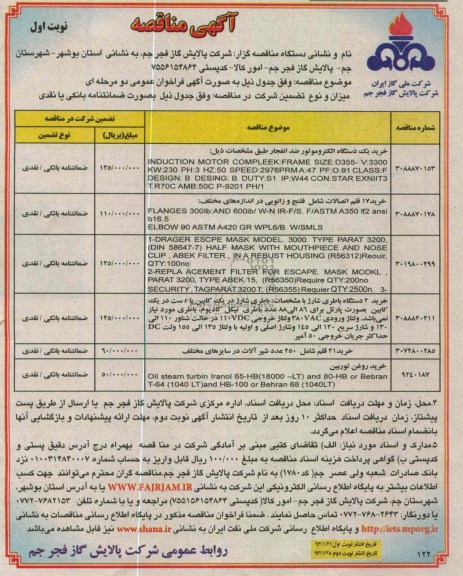 آگهی مناقصه
نوبت اول
شرکت ملی گاز ایران
شرکت پالایش گاز فجر جم
نام و نشانی دستگاه مناقصه گزار: شرکت پالایش گاز فجر جم، به نشانی استان بوشهر- شهرستان
جم- پالایش گاز فجر جم- امور کالا- کدپستی ۷۵۵۶۱۵۴۸۶۴
موضوع مناقصه: وفق جدول ذیل به صورت آگهی فراخوان عمومی دو مرحله ای
میزان و نوع تضمین شرکت در مناقصه: وفق جدول ذیل بصورت ضمانتنامه بانکی یا نقدی
شماره مناقصه
موضوع مناقصه
تضمین شرکت در مناقصه
مبلغ(ریال)
نوع تضمین
۳۰۸۸۸۷۰۱۵۳
خرید یک دستگاه الکتروموتور ضد انفجار طبق مشخصات ذیل:
INDUCTION MOTOR COMPLEEK:FRAME SIZE:D355- V:3300
KW:230 PH:3 HZ:50 SPEED:2976PRM A:47 PF:O.91 CLASS:F
DESIGN: B DESING: B DUTY:S1 IP:W44 CON:STAR EXNIIT3
T.R70C AMB:50C P-9201 PH/1
۱۳۵/۰۰۰/۰۰۰
ضمانتنامه بانکی / نقدی
۳۰۸۸۸۷۰۱۷۸
خرید۱۷ قلم اتصالات شامل فلنج و زانویی در اندازه‌های مختلف:
FLANGES 300lb:AND 600lb/ W-N IR-F/S. F/ASTM A350 lf2 ansi
b16.5
ELBOW 90 ASTM A420 GR WPL6/B W/SMLS
۱۱۰/۰۰۰/۰۰۰
ضمانتنامه بانکی / نقدی
۳۰۱۹۸۰۰۲۹۹
1-DRAGER ESCPE MASK MODEL. 3000. TYPE PARAT 3200,
(DIN 58647-7) HALF MASK WITH MOUTHPIECE AND NOSE
CLIP , ABEK FILTER , IN A REBUST HOUSING (R56312)Requir,
QTY:100no
2-REPLA ACEMENT FILTER FOR ESCAPE. MASK MODKL ,
PARAT 3200, TYPE ABEK 15, (R56350)Require QTY:2000no
SECURITY , TAGPARAT3200T, (R56355) Requier QTY:2500n. 3-
۱۲۵/۰۰۰/۰۰۰
ضمانتنامه بانکی / نقدی
۳۰۸۸۸۴۰۲۱۱
خرید ۲ دستگاه باطری شارژ با مشخصات: باطری شارژ در یک کابین
۱۲۵/۰۰۰/۰۰۰
ضمانتنامه بانکی / نقدی
۳۰۷۲۸۰۰۲۸۵
خرید۲۱ قلم شامل ۲۵۰ عدد شیر آلات در سایزهای مختلف
۹۰/۰۰۰/۰۰۰
ضمانتنامه بانکی / نقدی
۹۲۴۰۱۸۷
خرید روغن توربین
Oil steam turbin Iranol 65-HB(18000 –LT) and 80-HB or Bebran
T-64 (1040 LT)and HB-100 or Behran 68 (1040LT)
۵۰/۰۰۰/۰۰۰
ضمانتنامه بانکی / نقدی
۴.محل، زمان و مهلت دریافت اسناد: محل دریافت اسناد، اداره مرکزی شرکت پالایش گاز فجر جم یا ارسال از طریق پست
پیشتاز، زمان دریافت اسناد حداکثر ۱۰ روز بعد از تاریخ انتشار آگهی نوبت دوم، مهلت ارائه پیشنهادات و بازگشایی آنها
بانضمام اسناد مناقصه اعلام می‌گردد.
۵.مدارک و اسناد مورد نیاز: الف) تقاضای کتبی مبنی بر آمادگی شرکت در مناقصه بهمراه درج آدرس دقیق پستی و
کدپستی ب) گواهی پرداخت هزینه اسناد مناقصه به مبلغ ۱۰۰/۰۰۰ ریال قابل واریز به حساب شماره ۰۱۰۰۳۱۴۸۴۰۰۰۷ نزد
بانک صادرات شعبه ولی عصر جم( کد۱۷۸۰) به نام شرکت پالایش گاز فجر جم.مناقصه گران محترم می‌توانند جهت کسب
اطلاعات بیشتر به پایگاه اطلاع رسانی الکترونیکی این شرکت به نشانی WWW.FAJRJAM.IR یا به آدرس استان بوشهر،
شهرستان جم، شرکت پالایش گاز فجر جم- امور کالا( کدپستی ۷۵۵۶۱۵۴۸۶۴) مراجعه و یا با شماره تلفن ۷۶۸۲۱۵۳-۰۷۷۲
یا دورنگار: ۷۶۸۲۶۴۳-۰۷۷۲ تماس حاصل نمایند. ضمنا فراخوان مناقصه مذکور در پایگاه اطلاع رسانی مناقصات به نشانی
http://iets.mporg.ir و پایگاه اطلاع رسانی شرکت ملی نفت ایران به نشانی www.shana.ir نیز قابل مشاهده می‌باشد
تاریخ انتشار نوبت اول:
تاریخ انتشار نوبت دوم:
روابط عمومی شرکت پالایش گاز فجر جم
۱۲۲